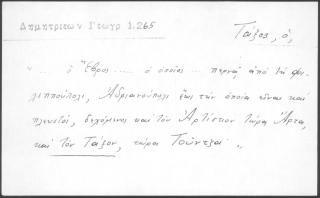 Δημητριεων Γεωγρ 1.265
Τάξος, ὁ,
«... ὁ Ἕβρος ... ὁ ὁποῖος ... περνᾷ ἀπὸ τὴ Φι-
λιππούπολι, Ἀδριανούπολι ἕως τὴν ὁποία εἶναι καὶ
πλευστός, δεχόμενος καὶ τὸν Ἀρτίσκον τώρα Ἄρτα,
καὶ τὸν Τάξον, τώρα Τούντζα».